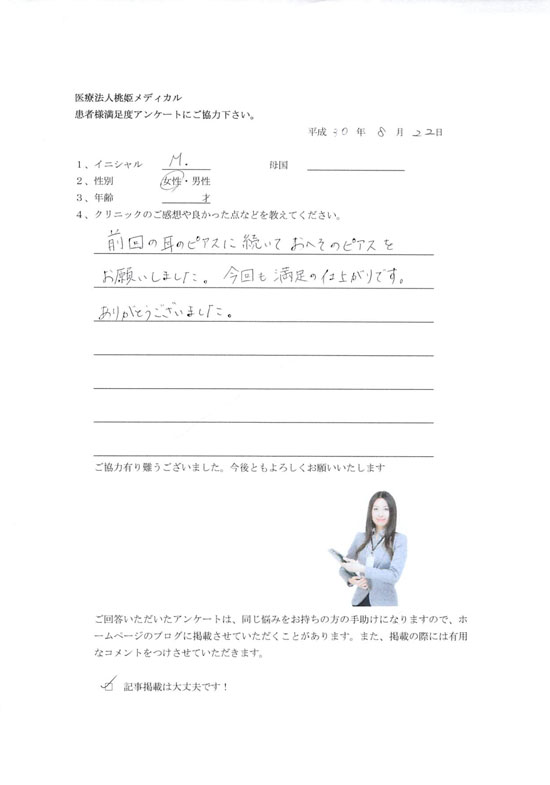 医療法人桃姫メディカル
患者様満足度アンケートにご協力下さい。
平成 30 年 8 月 22日
1、イニシャル M. 母国
2、性別 女性・男性
3、年齢 才
4、クリニックのご感想や良かった点などを教えてください。
前回の耳のピアスに続いておへそのピアスを
お願いしました。今回も満足の仕上がりです。
ありがとうございました。
ご協力有り難うございました。今後ともよろしくお願いいたします
ご回答いただいたアンケートは、同じ悩みをお持ちの方の手助けになりますので、ホ
ームページのブログに掲載させていただくことがあります。また、掲載の際には有用
なコメントをつけさせていただきます。
☑ 記事掲載は大丈夫です！